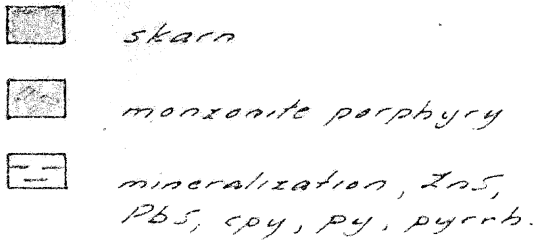 skarn
monzonite porphyry
mineralization, ZnS,
PbS, cpy, py, pyrrh.